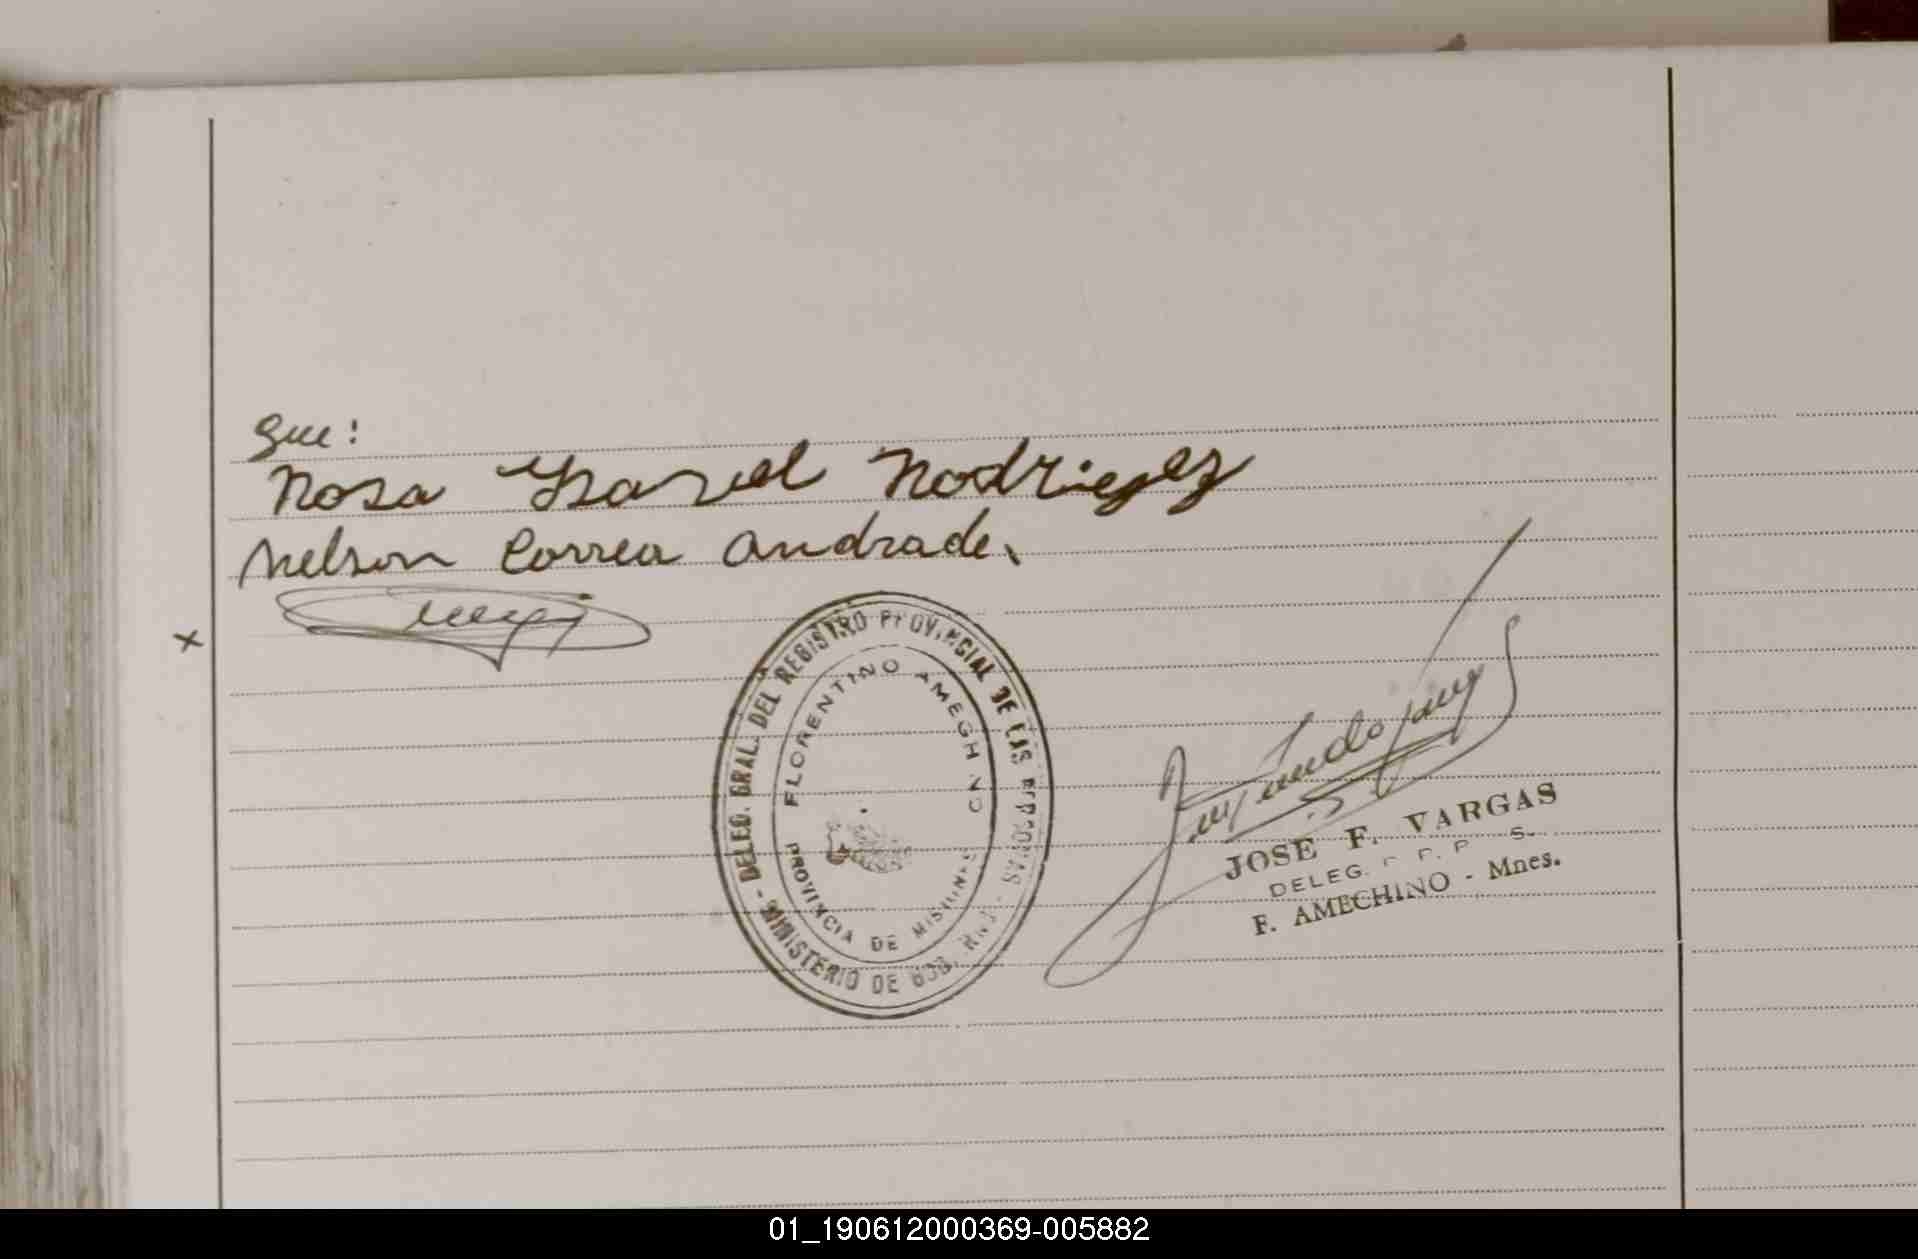 que:
Rosa Ysavel Rodriegez
Nelson Correa Andrade.
x
- DELEG. GRAL. DEL REGISTRO PROVINCIAL DE LAS PERSONAS -
FLORENTINO AMEGHINO
PROVINCIA DE MISIONES
MINISTERIO DE GOB.
JOSE F. VARGAS
DELEG. R. P. P. S.
F. AMECHINO - Mnes.
01_190612000369-005882